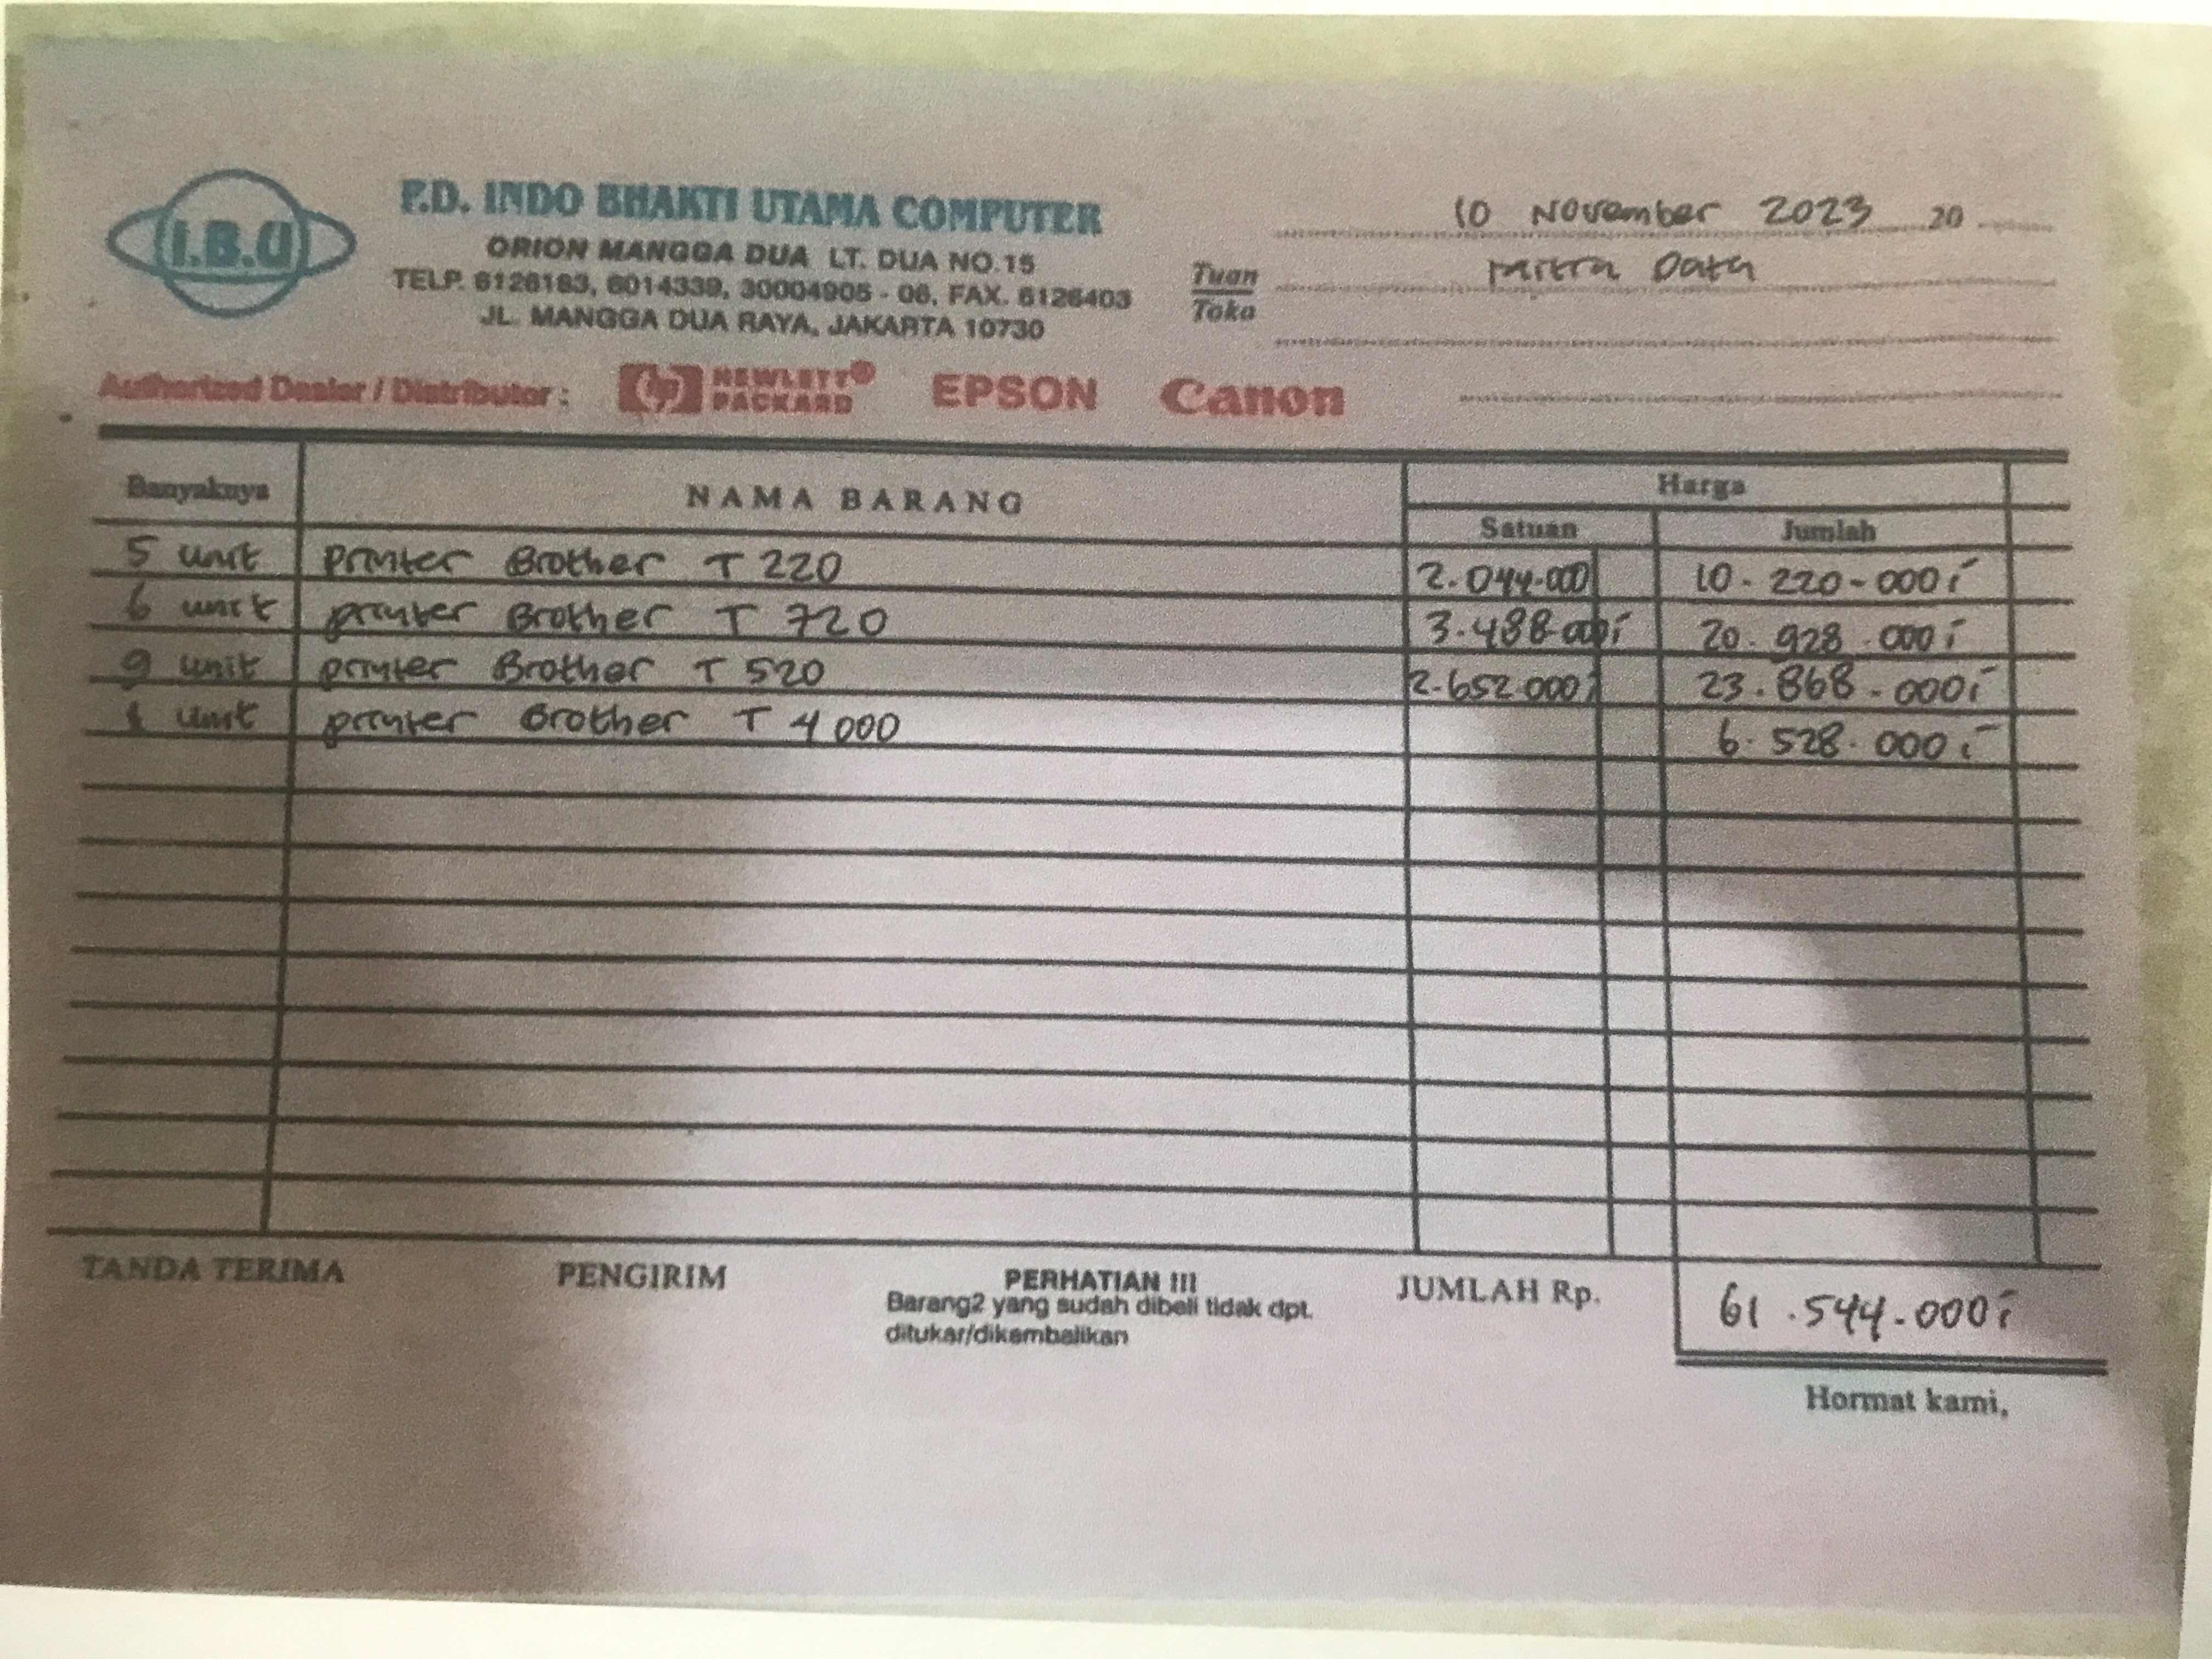 I.B.U
P.D. INDO BHAKTI UTAMA COMPUTER
ORION MANGGA DUA LT. DUA NO.15
TELP. 6126183, 6014339, 30004905 - 06, FAX. 6126403
JL. MANGGA DUA RAYA, JAKARTA 10730
10 November 2023 20
Tuan
Toko
Mitra Data
Authorized Dealer / Distributor : hp HEWLETT PACKARD EPSON Canon
Banyaknya NAMA BARANG Harga
Satuan Jumlah
5 unit printer Brother T 220 2.044.000 10.220.000,-
6 unit printer Brother T 720 3.488.000,- 20.928.000,-
9 unit printer Brother T 520 2.652.000,- 23.868.000,-
1 unit printer Brother T 4000 6.528.000,-
TANDA TERIMA PENGIRIM PERHATIAN !!! JUMLAH Rp. 61.544.000,-
Barang2 yang sudah dibeli tidak dpt.
ditukar/dikembalikan
Hormat kami,